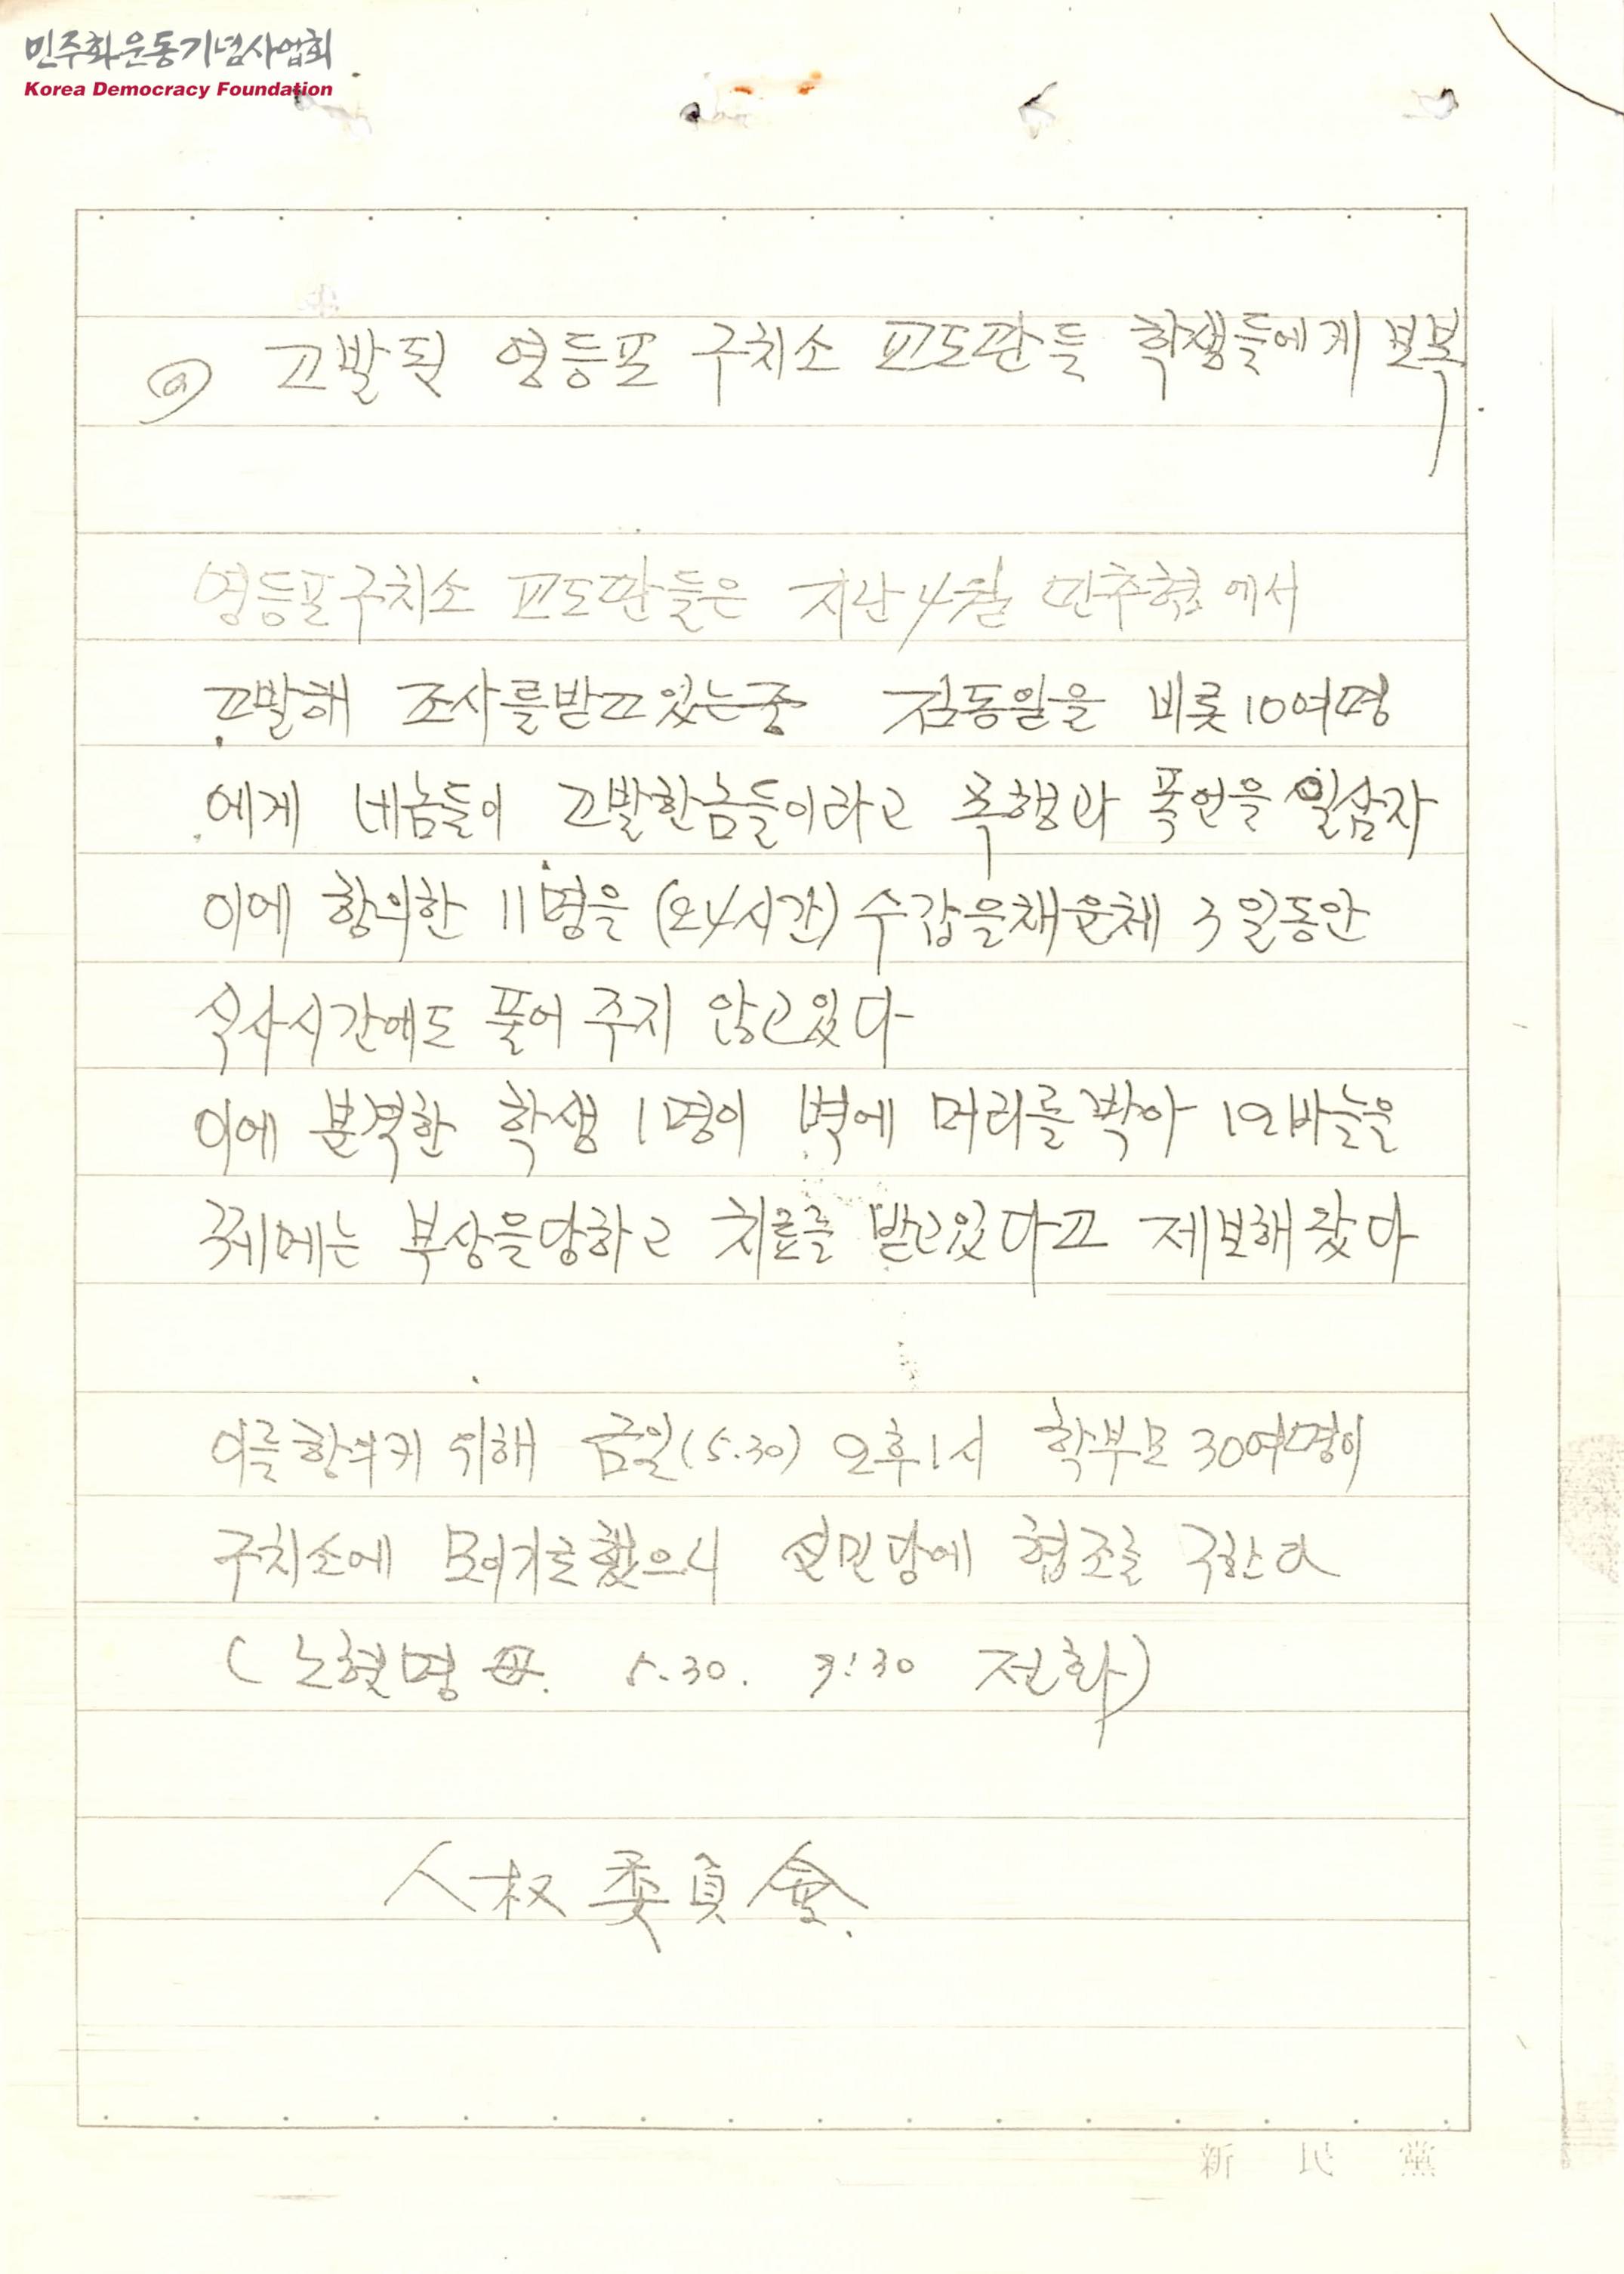 민주화운동기념사업회
Korea Democracy Foundation
고발된 영등포 구치소 교도관들 학생들에게 보복
영등포구치소 교도관들은 지난 4월 민추협에서
고발해 조사를받고있는중 김동일을 비롯 10여명
에게 네놈들이 고발한놈들이라고 폭행과 폭언을 일삼자
이에 항의한 11명을 (24시간) 수갑을채운체 3일동안
식사시간에도 풀어 주지 않고있다
이에 분격한 학생 1명이 벽에 머리를 박아 12바늘을
꿰메는 부상을당하고 치료를 받고있다고 제보해 왔다
이를항의키 위해 금일(5.30) 오후1시 학부모 30여명이
구치소에 모이기로했으니 신민당에 협조를 구한다
(노현명 母. 5.30. 9:30 전화)
人权委員會.
新民黨